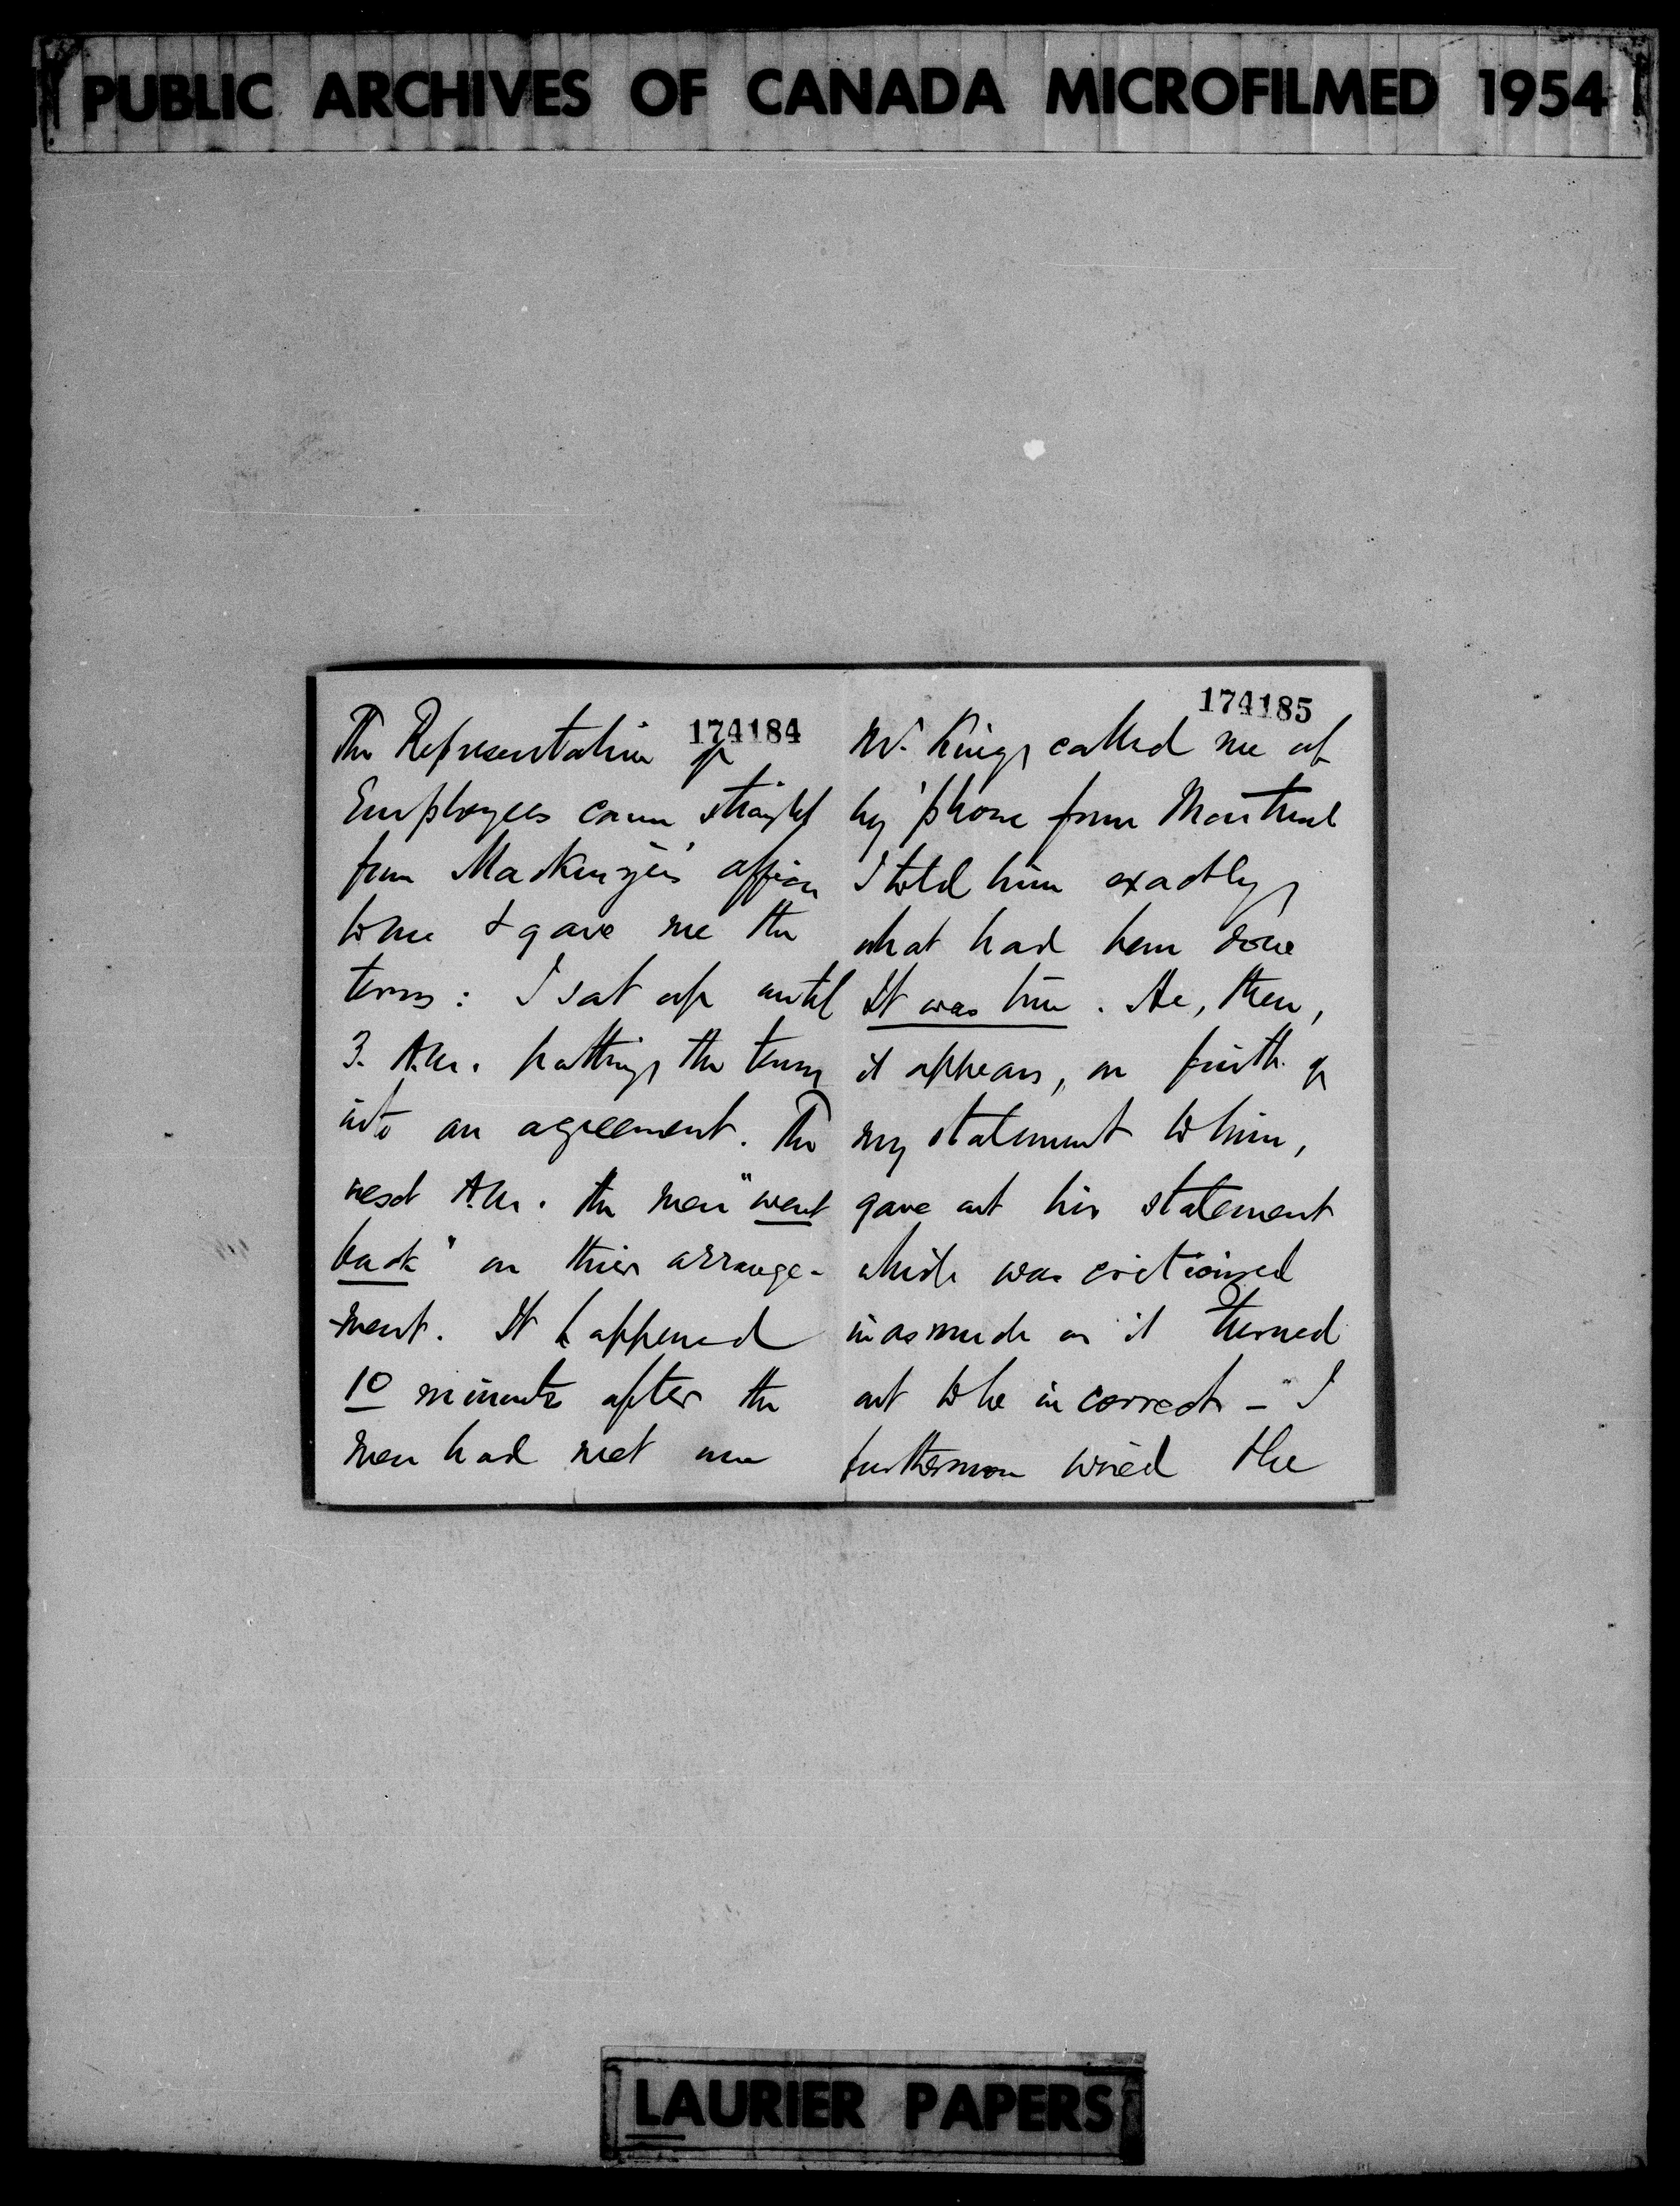 PUBLIC ARCHIVES OF CANADA MICROFILMED 1954
174184
The Representative of
Employees came straight
from Mackenzie's office
to me & gave me the
terms: I sat up until
3. A.M. putting the terms
into an agreement. The
next A.M. the men "went
back" on their arrange-
-ment. It happened
10 minutes after the
men had met me
174185
Mr. King called me up
by 'phone from Montreal
I told him exactly
what had been done
It was true. He, then,
it appears, on faith of
my statement to him,
gave out his statement
which was criticised
inasmuch as it turned
out to be incorrect - I
furthermore wired the
LAURIER PAPERS